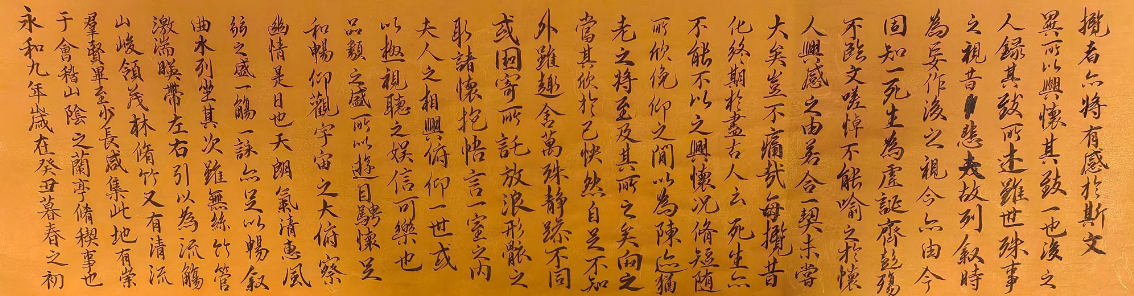 永和九年歲在癸丑暮春之初
于會稽山陰之蘭亭脩稧事也
羣賢畢至少長咸集此地有崇
山峻領茂林脩竹又有清流
激湍暎帶左右引以為流觴
曲水列坐其次雖無絲竹管
弦之盛一觴一詠亦足以暢叙
幽情是日也天朗氣清惠風
和暢仰觀宇宙之大俯察
品類之盛所以遊目騁懷足
以極視聽之娛信可樂也
夫人之相與俯仰一世或
取諸懷抱悟言一室之內
或因寄所託放浪形骸之
外雖趣舍萬殊静躁不同
當其欣於己怏然自足不知
老之將至及其所之矣向之
所欣俛仰之間以為陳迹猶
不能不以之興懷況脩短隨
化終期於盡古人云死生亦
大矣豈不痛哉每攬昔
人興感之由若合一契未嘗
不臨文嗟悼不能喻之於懷
固知一死生為虛誕齊彭殤
為妄作後之視今亦由今
之視昔悲夫故列叙時
人錄其致所述雖世殊事
異所以興懷其致一也後之
攬者亦將有感於斯文